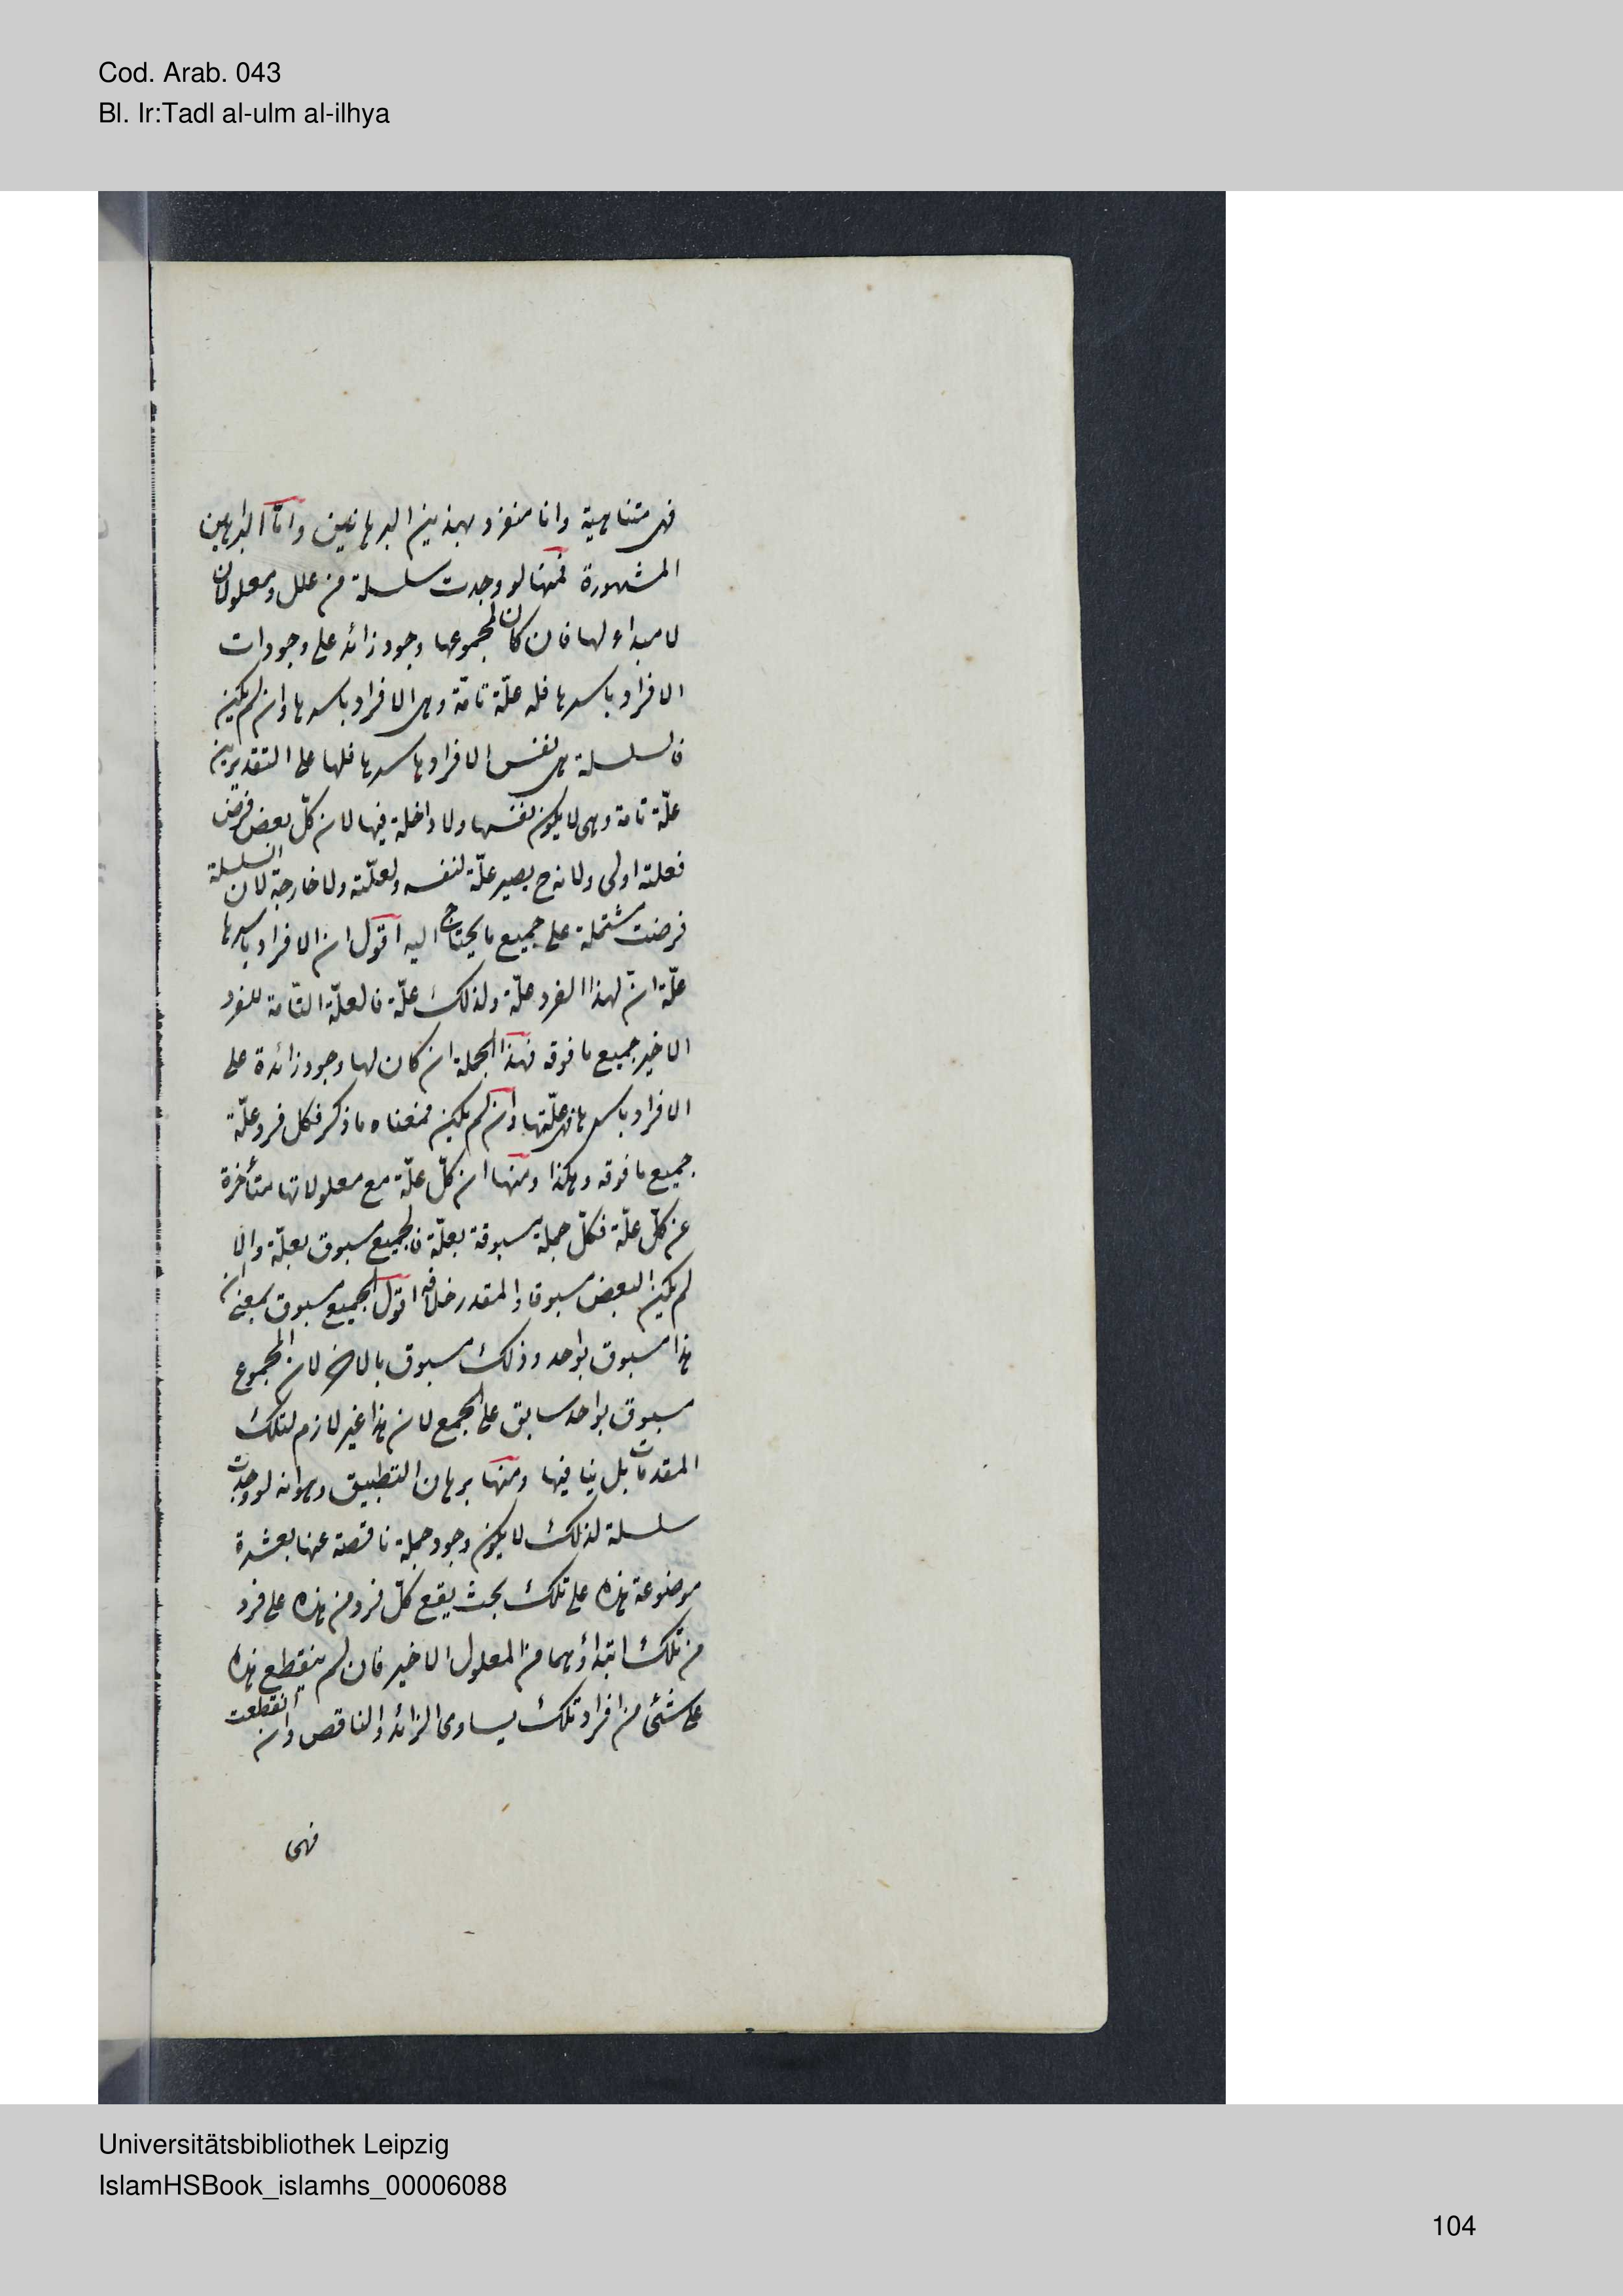 Cod. Arab. 043
Bl. Ir:Tadl al-ulm al-ilhya
فهى متناهية وانا منفرد بهذين البرهانين واما البراهين
المشهورة فمنها لو وجدت سلسلة من علل ومعلولات
لا مبداء لها فان كان لمجموعها وجود زائد على وجودات
الافراد باسرها فله علّة تامّة وهى الافراد باسرها وان لم يكن
فالسلسلة هى نفس الافراد باسرها فلها على التقديرين
علّة تامة وهى لا يكون نفسها ولا داخلة فيها لان كلّ بعض فرض
فعلته اولى ولانه ح يصير علّة لنفسه ولعلّته ولا خارجة لان السلسلة
فرضت مشتملة على جميع ما يحتاج اليه اقول ان الافراد باسرها
علّة ان لهذا الفرد علّة ولذلك علّة فالعلّة التّامة للفرد
الاخير جميع ما فوقه فهذا الجملة ان كان لها وجود زائدة على
الافراد باسرها فهى علّتها وان لم يكن فمعناه ما ذكر فكل فرد علّة
جميع ما فوقه وهكذا ومنها ان كلّ علّة مع معلولاتها متأخرة
عن كلّ علّة فكلّ جملة مسبوقة بعلّة فالجميع مسبوق بعلّة والا
لم يكن البعض مسبوقا والمقدر خلافه اقول الجميع مسبوق بمعنى ان
هذا مسبوق بواحد وذلك مسبوق بالاخر لان المجموع
مسبوق بواحد سابق على الجمع لان هذا غير لازم لتلك
المقدمات بل ينافيها ومنها برهان التطبيق وهو انه لو وجدت
سلسلة لذلك لا يكون وجود جملة ناقصة عنها بعشرة
موضوعة هذه على تلك بحث يقع كلّ فرد من هذه على فرد
من تلك ابتداؤهما من المعلول الاخير فان لم ينقطع هذه
على شئى من افراد تلك يساوى الزائد والناقص وان انقطعت
فهى
Universitätsbibliothek Leipzig
IslamHSBook_islamhs_00006088
104